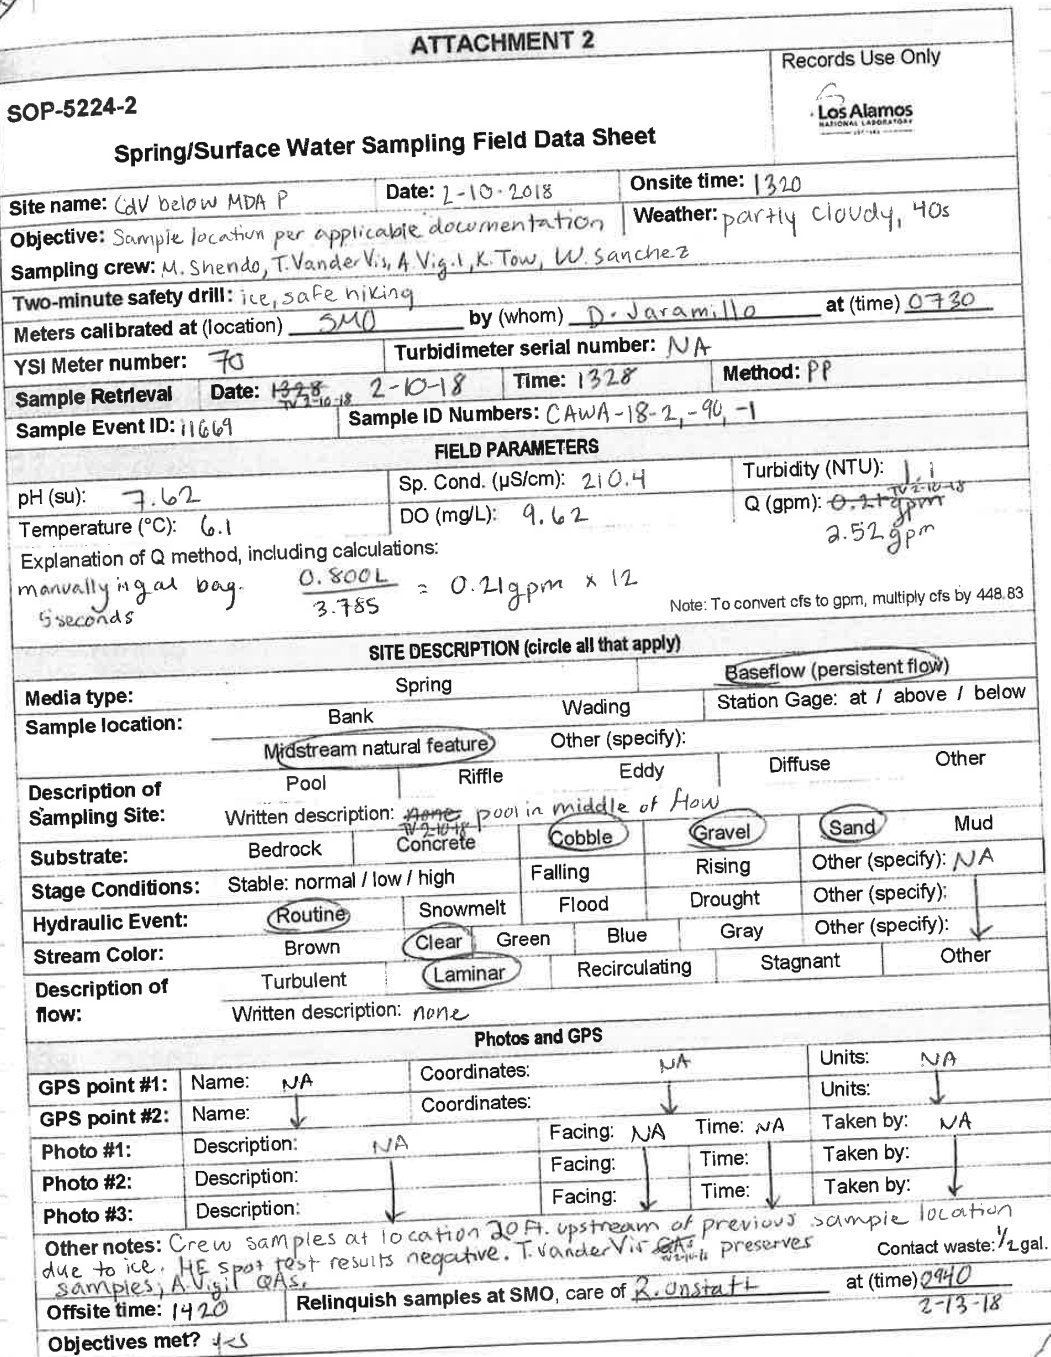 ATTACHMENT 2
Records Use Only
SOP-5224-2
Los Alamos
NATIONAL LABORATORY
Spring/Surface Water Sampling Field Data Sheet
Site name: CdV below MDA P Date: 2-10-2018 Onsite time: 1320
Objective: Sample location per applicable documentation Weather: partly cloudy, 40s
Sampling crew: M. Shendo, T. VanderVis, A. Vigil, K. Tow, W. Sanchez
Two-minute safety drill: ice, safe hiking
Meters calibrated at (location) SMO by (whom) D. Jaramillo at (time) 0730
YSI Meter number: 70 Turbidimeter serial number: NA
Sample Retrieval Date: 1328 TV 2-10-18 2-10-18 Time: 1328 Method: PP
Sample Event ID: 11669 Sample ID Numbers: CAWA-18-2, -90, -1
FIELD PARAMETERS
pH (su): 7.62 Sp. Cond. (µS/cm): 210.4 Turbidity (NTU): 1.1
Temperature (°C): 6.1 DO (mg/L): 9.62 Q (gpm): 0.21 gpm TV 2-10-18
2.52 gpm
Explanation of Q method, including calculations:
manually in gal bag. 0.800L / 3.785 = 0.21gpm x 12
5 seconds
Note: To convert cfs to gpm, multiply cfs by 448.83
SITE DESCRIPTION (circle all that apply)
Media type: Spring Baseflow (persistent flow)
Sample location: Bank Wading Station Gage: at / above / below
Midstream natural feature Other (specify):
Description of Sampling Site: Pool Riffle Eddy Diffuse Other
Written description: none TV 2-10-18 pool in middle of flow
Substrate: Bedrock Concrete Cobble Gravel Sand Mud
Stage Conditions: Stable: normal / low / high Falling Rising Other (specify): NA
Hydraulic Event: Routine Snowmelt Flood Drought Other (specify):
Stream Color: Brown Clear Green Blue Gray Other (specify):
Description of flow: Turbulent Laminar Recirculating Stagnant Other
Written description: none
Photos and GPS
GPS point #1: Name: NA Coordinates: NA Units: NA
GPS point #2: Name: Coordinates: Units:
Photo #1: Description: NA Facing: NA Time: NA Taken by: NA
Photo #2: Description: Facing: Time: Taken by:
Photo #3: Description: Facing: Time: Taken by:
Other notes: Crew samples at location 20 ft. upstream of previous sample location
due to ice. HE spot test results negative. T. VanderVis QAs TV 2-10-18 preserves
samples; A. Vigil QAs. Contact waste: 1/2 gal.
Offsite time: 1420 Relinquish samples at SMO, care of at (time) 0940
2-13-18
Objectives met? yes